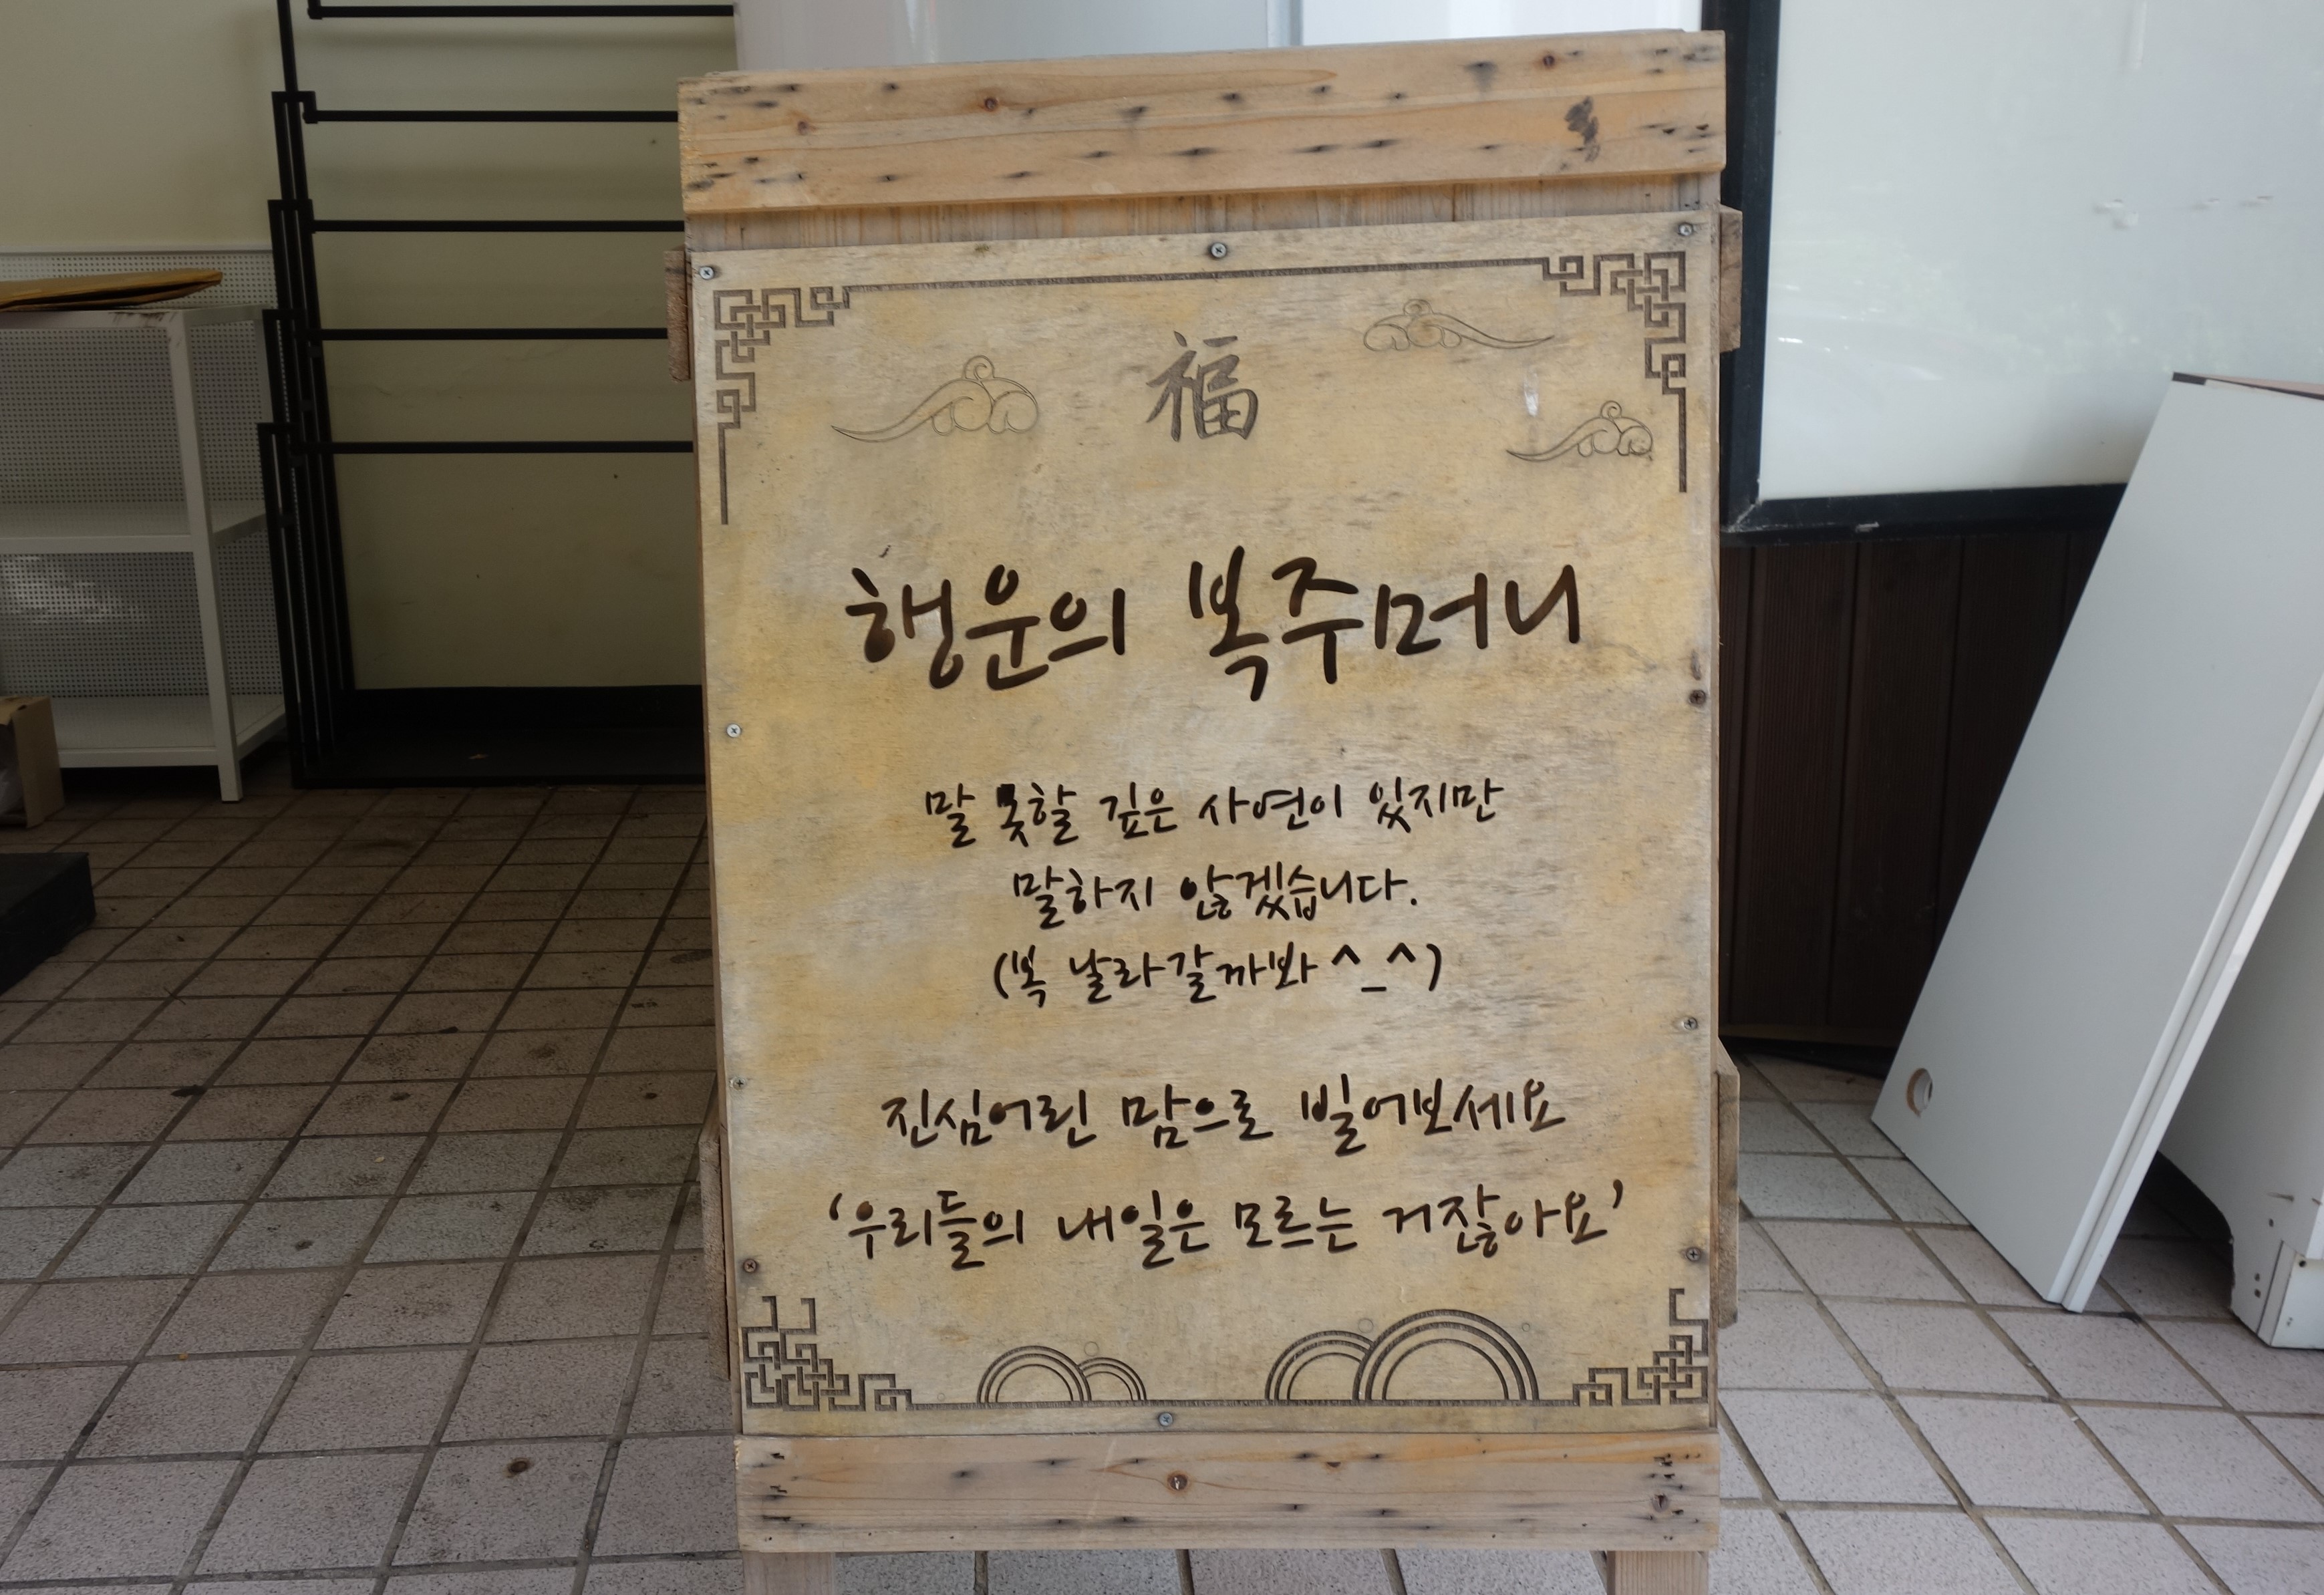 福
행운의 복주머니
말 못할 깊은 사연이 있지만
말하지 않겠습니다.
(복 날라갈까봐 ^_^)
진심어린 맘으로 빌어보세요
‘우리들의 내일은 모르는 거잖아요’